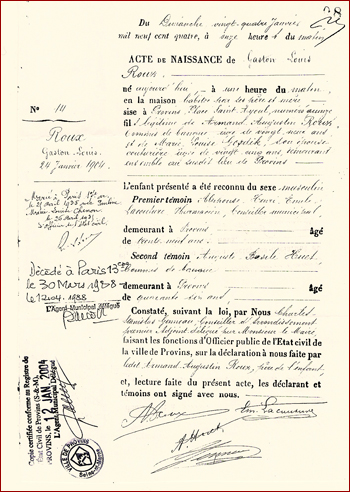 28
Du Dimanche vingt-quatre janvier
mil neuf cent quatre, à onze heures du matin
ACTE DE NAISSANCE de Gaston Louis
Roux
né aujourd'hui, à une heure du matin,
en la maison habitée par ses père et mère
sise à Provins, Place Saint Ayoul, numéro
fils légitime de Armand Augustin Roux
commis de banque âgé de vingt neuf ans
et de Marie Louise son épouse
couturière âgée de vingt cinq ans demeurant
ensemble au susdit lieu de Provins
N° 14
Roux
Gaston Louis.
24 Janvier 1904
L'enfant présenté a été reconnu du sexe masculin
Premier témoin Alphonse Henri Emile
Lacouture Conseiller municipal
demeurant à Provins âgé
de trente neuf ans.
Second témoin Auguste Basile Huet
demeurant à Provins âgé
de quarante six ans,
Décédé à Paris 13
le 30 Mars 1988
le 12.04.1988
L'Agent Municipal Délégué
Constaté, suivant la loi, par Nous Charles
Stanislas Conseiller d'arrondissement
premier Adjoint délégué par Monsieur le Maire
faisant les fonctions d'Officier public de l'Etat civil de
la ville de Provins, sur la déclaration à nous faite par
ledit Armand Augustin Roux, père de l'enfant
et, lecture faite du présent acte, les déclarant et
témoins ont signé avec nous.
A Roux
Em. Lacouture
A. Huet
Copie certifiée conforme au Registre de
Etat Civil de Provins (S-&-M),
PROVINS, le 2 JAN. 2004
L'Agent Municipal Délégué
VILLE DE PROVINS
Seine-et-Marne